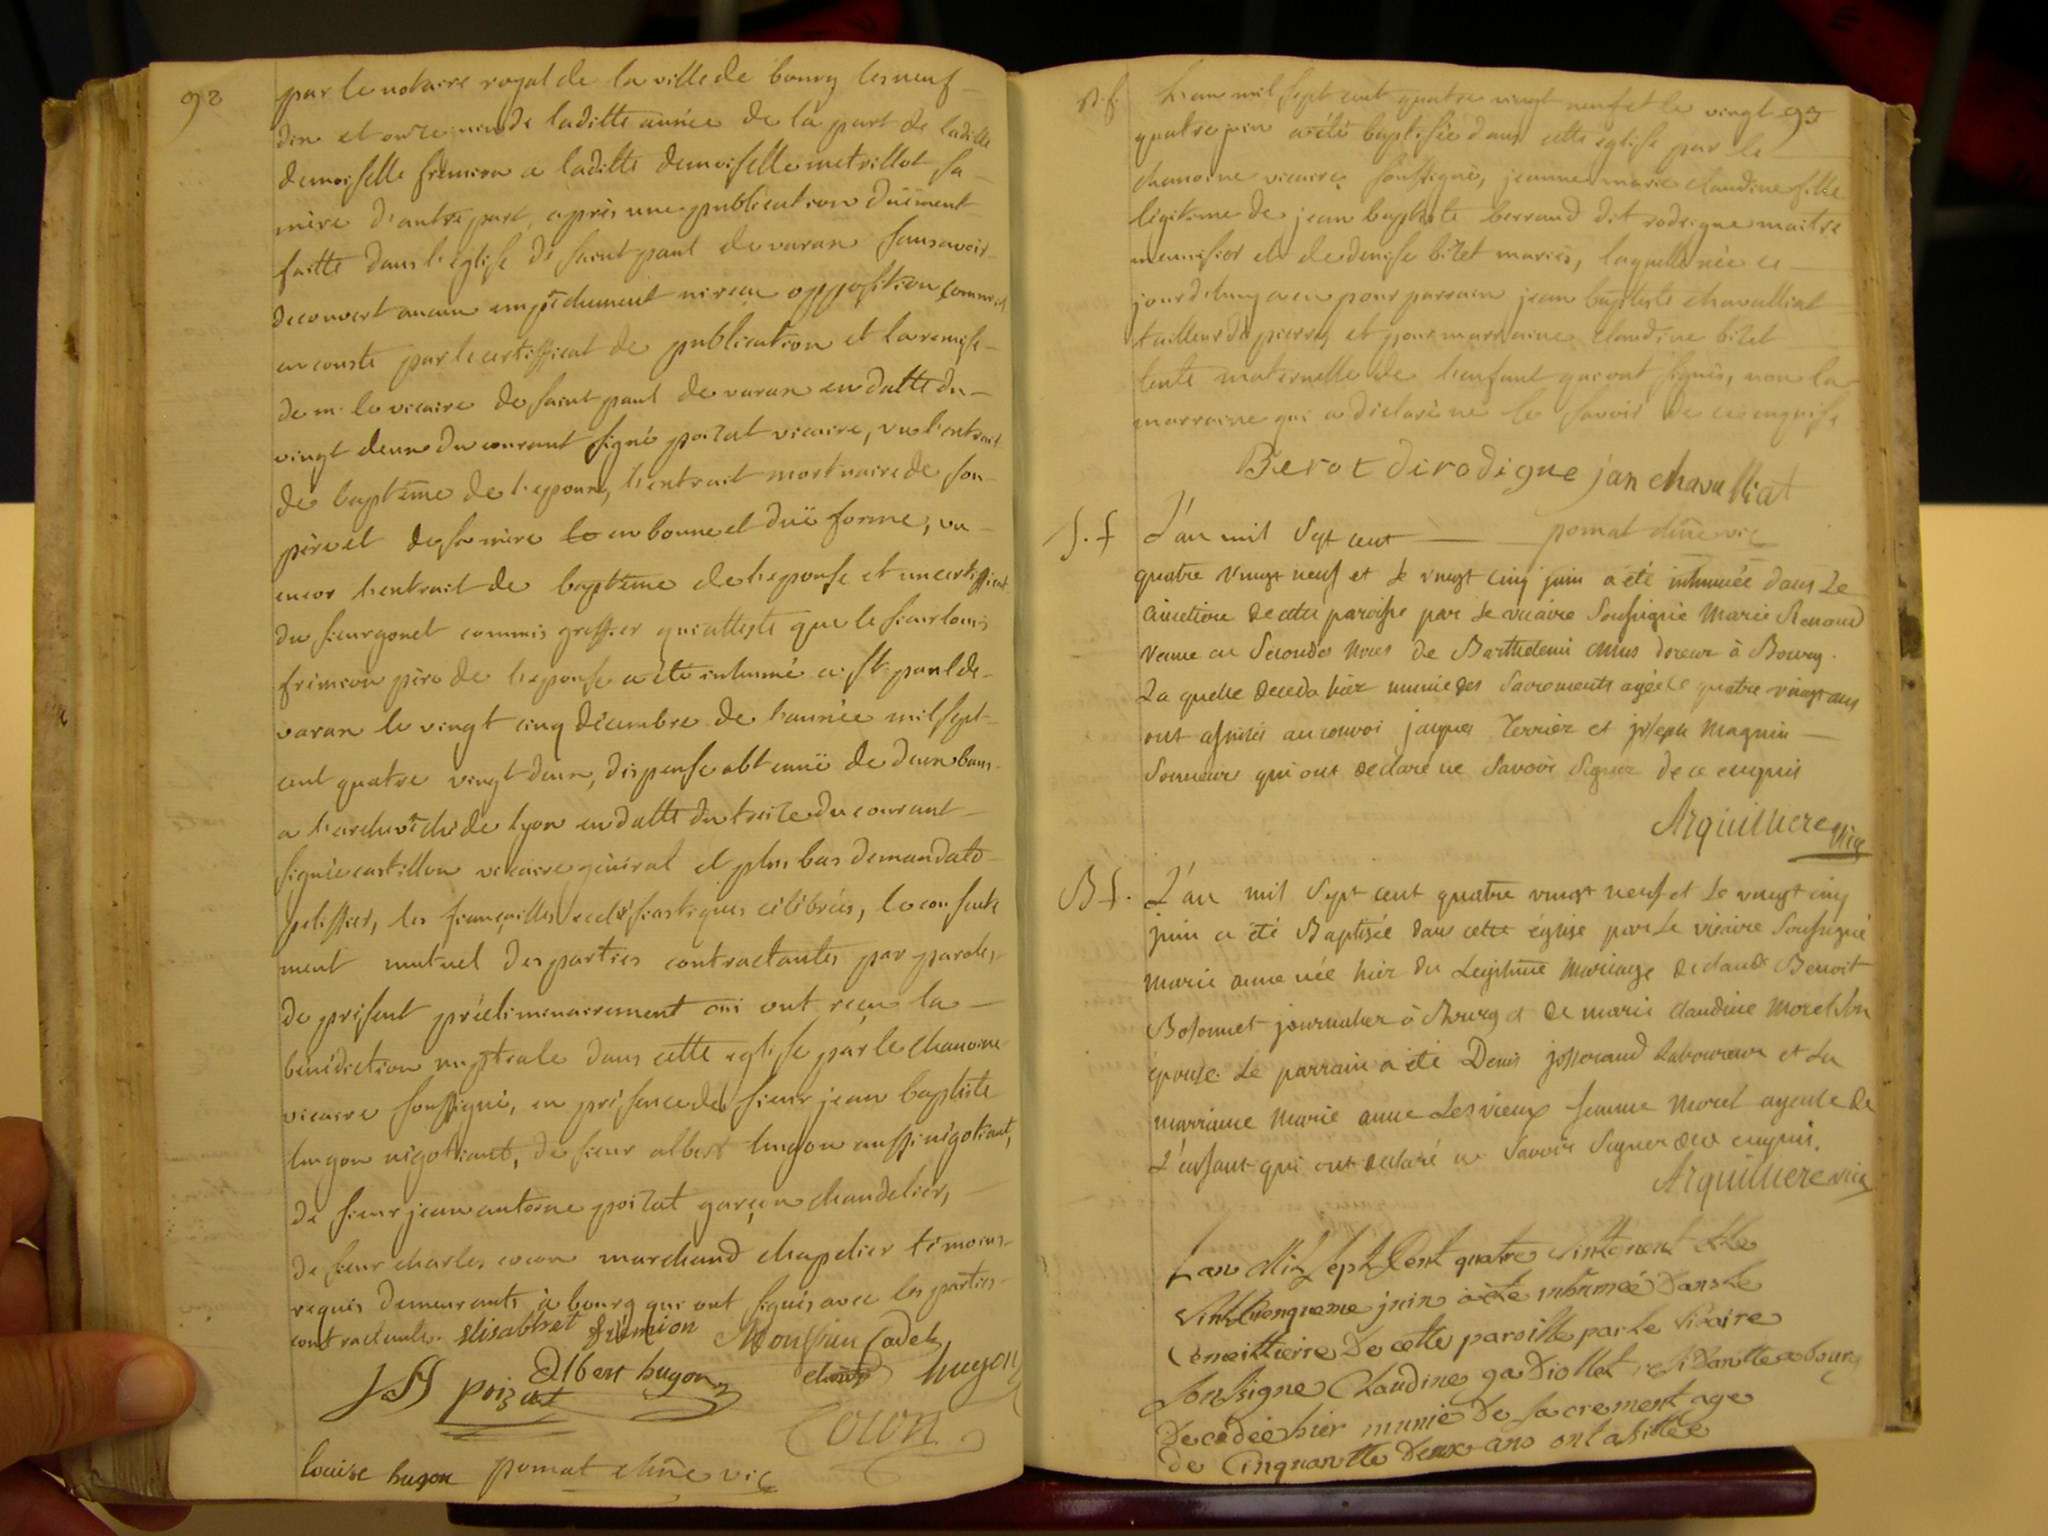 92
par le notaire royal de la ville de bourg les neuf
dix et onze juin de laditte année de la part de laditte
demoiselle frémion a laditte demoiselle metrillot sa
mère d'autre part, après une publication düement
faitte dans l'église de saint paul de varan sans avoir
decouvert aucun empêchement ni reçu opposition comme il
en conste par le certifficat de publication et la remise
de m. le vicaire de saint paul de varan en datte du
vingt deux du courant signé poizat vicaire, vu l'extrait
de baptême de l'epoux, l'extrait mortuaire de son
père et de sa mère en bonne et düe forme, vu
encor l'extrait de baptême de l'epouse et un certifficat
du sieur gonet commis greffier qui atteste que le sieur louis
frémion père de l'epouse a été inhumé a st. paul de
varan le vingt cinq décembre de l'année mil sept
cent quatre vingt deux, dispense obtenuë de deux bans
a l'archevêché de lyon en datte du treize du courant
signée castillon vicaire général et plus bas demandato
pelissier, les fiançailles ecclésiastiques célébrées, le consente
ment mutuel des parties contractantes par paroles
de présent préliminairement oui ont reçu la
bénédiction nuptiale dans cette eglise par le chanoine
vicaire soussigné, en présence de sieur jean baptiste
hugon négotiant, de sieur albert hugon aussi négotiant,
de sieur jean antoine poizat garçon chandelier,
de sieur charles cocon marchand chapelier témoins
requis demeurants à bourg qui ont signés avec les parties
contractante. Elisabhet frémion Monssieu Cadet
J A poizat Albert hugon hugon
Cocon
louise hugon pomat chñe vic
93
B. f. L'an mil sept cent quatre vingt neuf et le vingt
quatre juin a été baptisée dans cette eglise par le
chanoine vicaire soussigné, jeanne marie claudine fille
légitime de jean baptiste berraud dit rodrigue maitre
menuisier et de denise bizet mariés, laquelle née ce
jourd'huy a eu pour parrain jean baptiste chavalliat
tailleur de pierre, et pour marraine claudine bizet
tente maternelle de l'enfant qui ont signés, non la
marraine qui a déclaré ne le savoir de ce enquise
Berot dirodigue jan chavalliat
pomat chñe vic
S. f L'an mil sept cent
quatre vingt neuf et le vingt cinq juin a été inhumée dans le
cimetiere de cette paroisse par le vicaire soussigné Marie Renaud
veuve en secondes noces de Barthelemi doreur à Bourg.
La quelle deceda hier munie des sacrements agée de quatre vingt ans
ont assistés au convoi jaques Terrier et joseph Magnin
sonneurs qui ont declaré ne savoir signer de ce enquis
Arquilliere vic
B f. L'an mil sept cent quatre vingt neuf et le vingt cinq
juin a été Baptisée dans cette église par le vicaire soussigné
marie anne née hier du Legitime Mariage de claude Benoit
Bosonnet journalier à Bourg et de marie claudine Morel son
épouse. Le parrain a été Denis josserand Laboureur et la
marraine Marie anne Lesvieux femme Morel ayeule de
L'enfant qui ont declaré ne savoir signer de ce enquis.
Arquilliere vic
Lan Mil sept Cent quatre vintneuf et le
vintcinqueme juin a été inhumée dans le
Cemeittierre de cette paroisse par le Vicaire
sousigne Claudine gadiollet residantte a bourg
decedée hier munie de sacrement age
de Cinquantte deux ans ont asistée